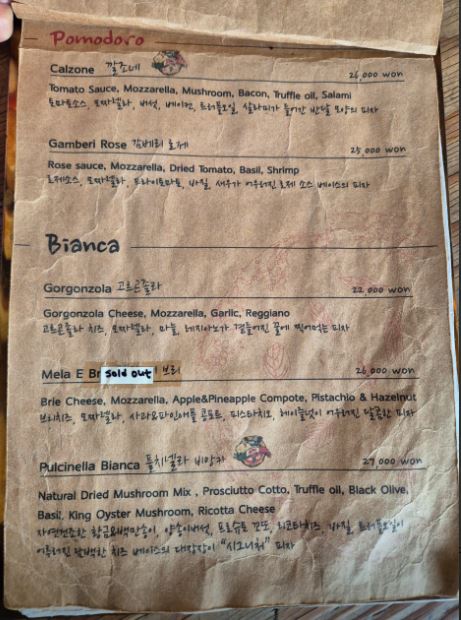 Pomodoro
Calzone 깔조네 26,000 won
Tomato Sauce, Mozzarella, Mushroom, Bacon, Truffle oil, Salami
토마토소스, 모짜렐라, 버섯, 베이컨, 트러플오일, 살라미가 들어간 반달 모양의 피자
Gamberi Rose 감베리 로제 25,000 won
Rose sauce, Mozzarella, Dried Tomato, Basil, Shrimp
로제소스, 모짜렐라, 드라이토마토, 바질, 새우가 어우러진 로제 소스 베이스의 피자
Bianca
Gorgonzola 고르곤졸라 22,000 won
Gorgonzola Cheese, Mozzarella, Garlic, Reggiano
고르곤졸라 치즈, 모짜렐라, 마늘, 레지아노가 곁들어진 꿀에 찍어먹는 피자
Mela E Br sold out 브리 26,000 won
Brie Cheese, Mozzarella, Apple&Pineapple Compote, Pistachio & Hazelnut
브리치즈, 모짜렐라, 사과&파인애플 콤포트, 피스타치오, 헤이즐넛이 어우러진 달콤한 피자
Pulcinella Bianca 풀치넬라 비앙카 27,000 won
Natural Dried Mushroom Mix , Prosciutto Cotto, Truffle oil, Black Olive,
Basil, King Oyster Mushroom, Ricotta Cheese
자연건조한 황금&백만송이, 양송이버섯, 프로슈토 꼬또, 리코타치즈, 바질, 트러플오일이
어우러진 담백한 치즈 베이스의 대장장이 “시그니처” 피자